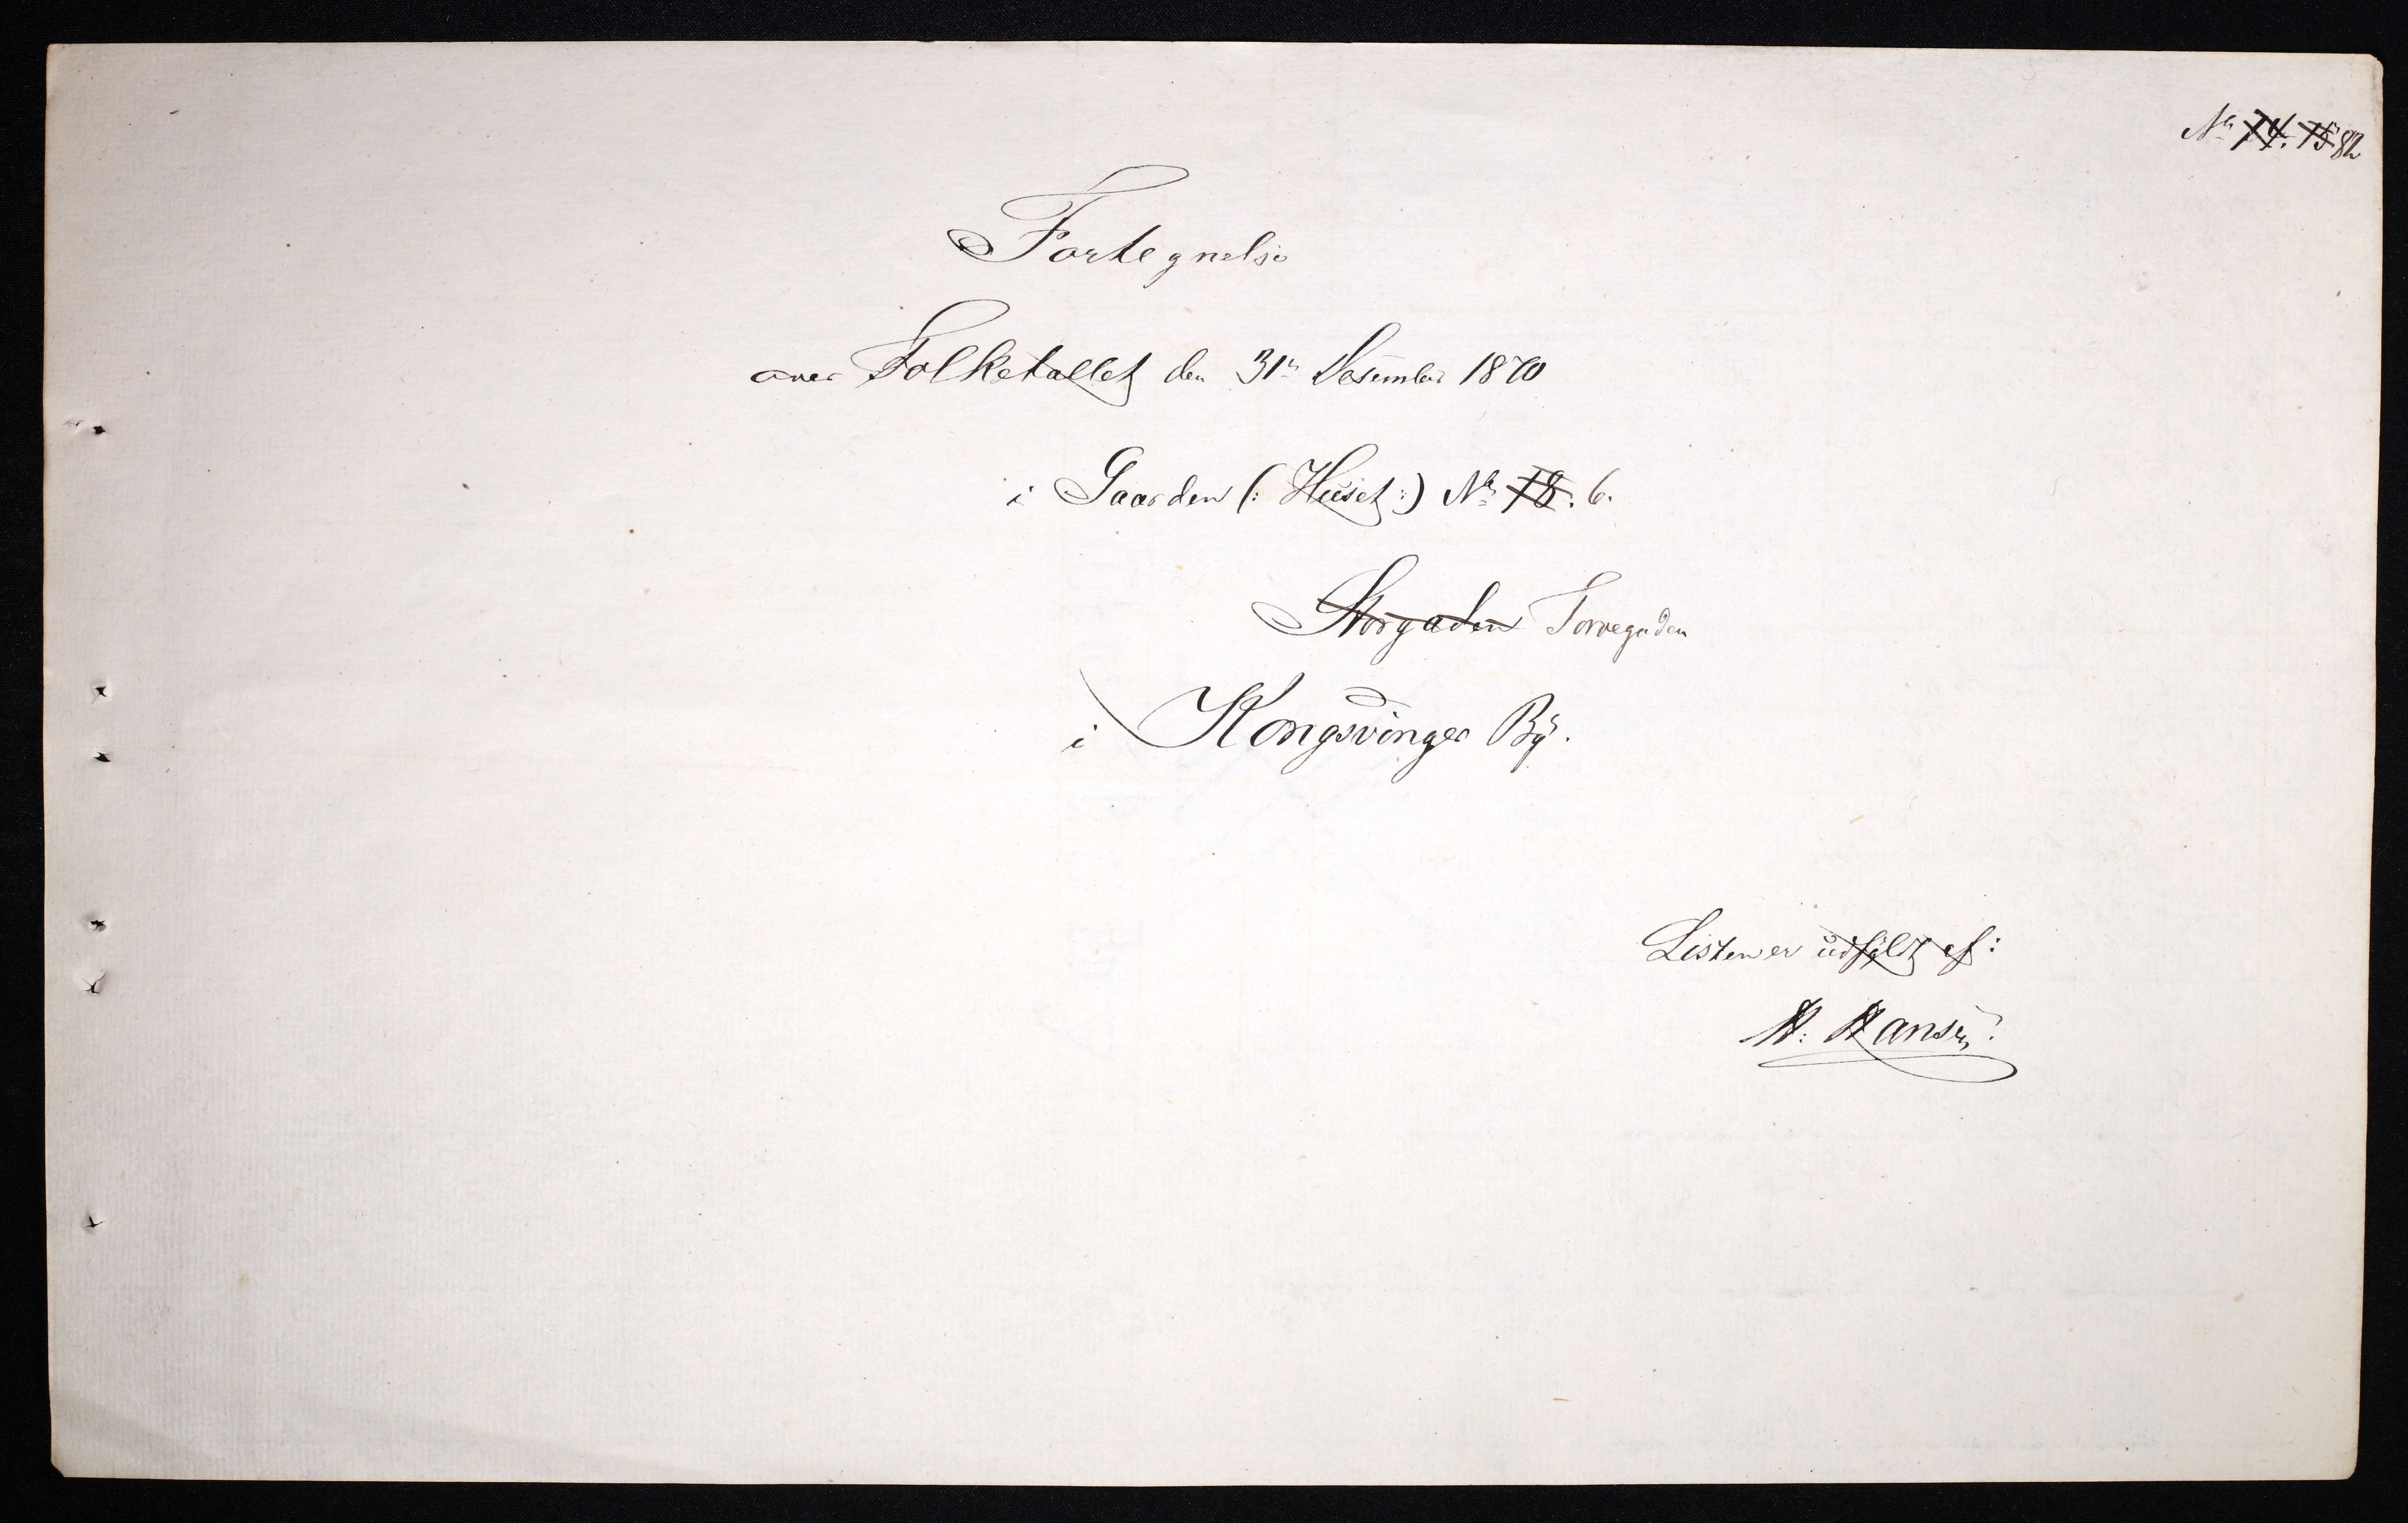 No 14. 15 82
Fortegnelse
over Folketallet den 31te Desember 1870
i Gaarden (: Huset :) No 18. 6.
Storgaden Torvegaden
i Kongsvinger By.
Listen er udfyldt af:
H. Hansen.